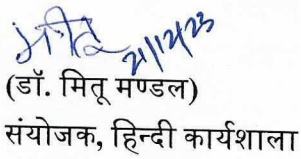 मीतू
21/12/23
(डॉ. मितू मण्डल)
संयोजक, हिन्दी कार्यशाला